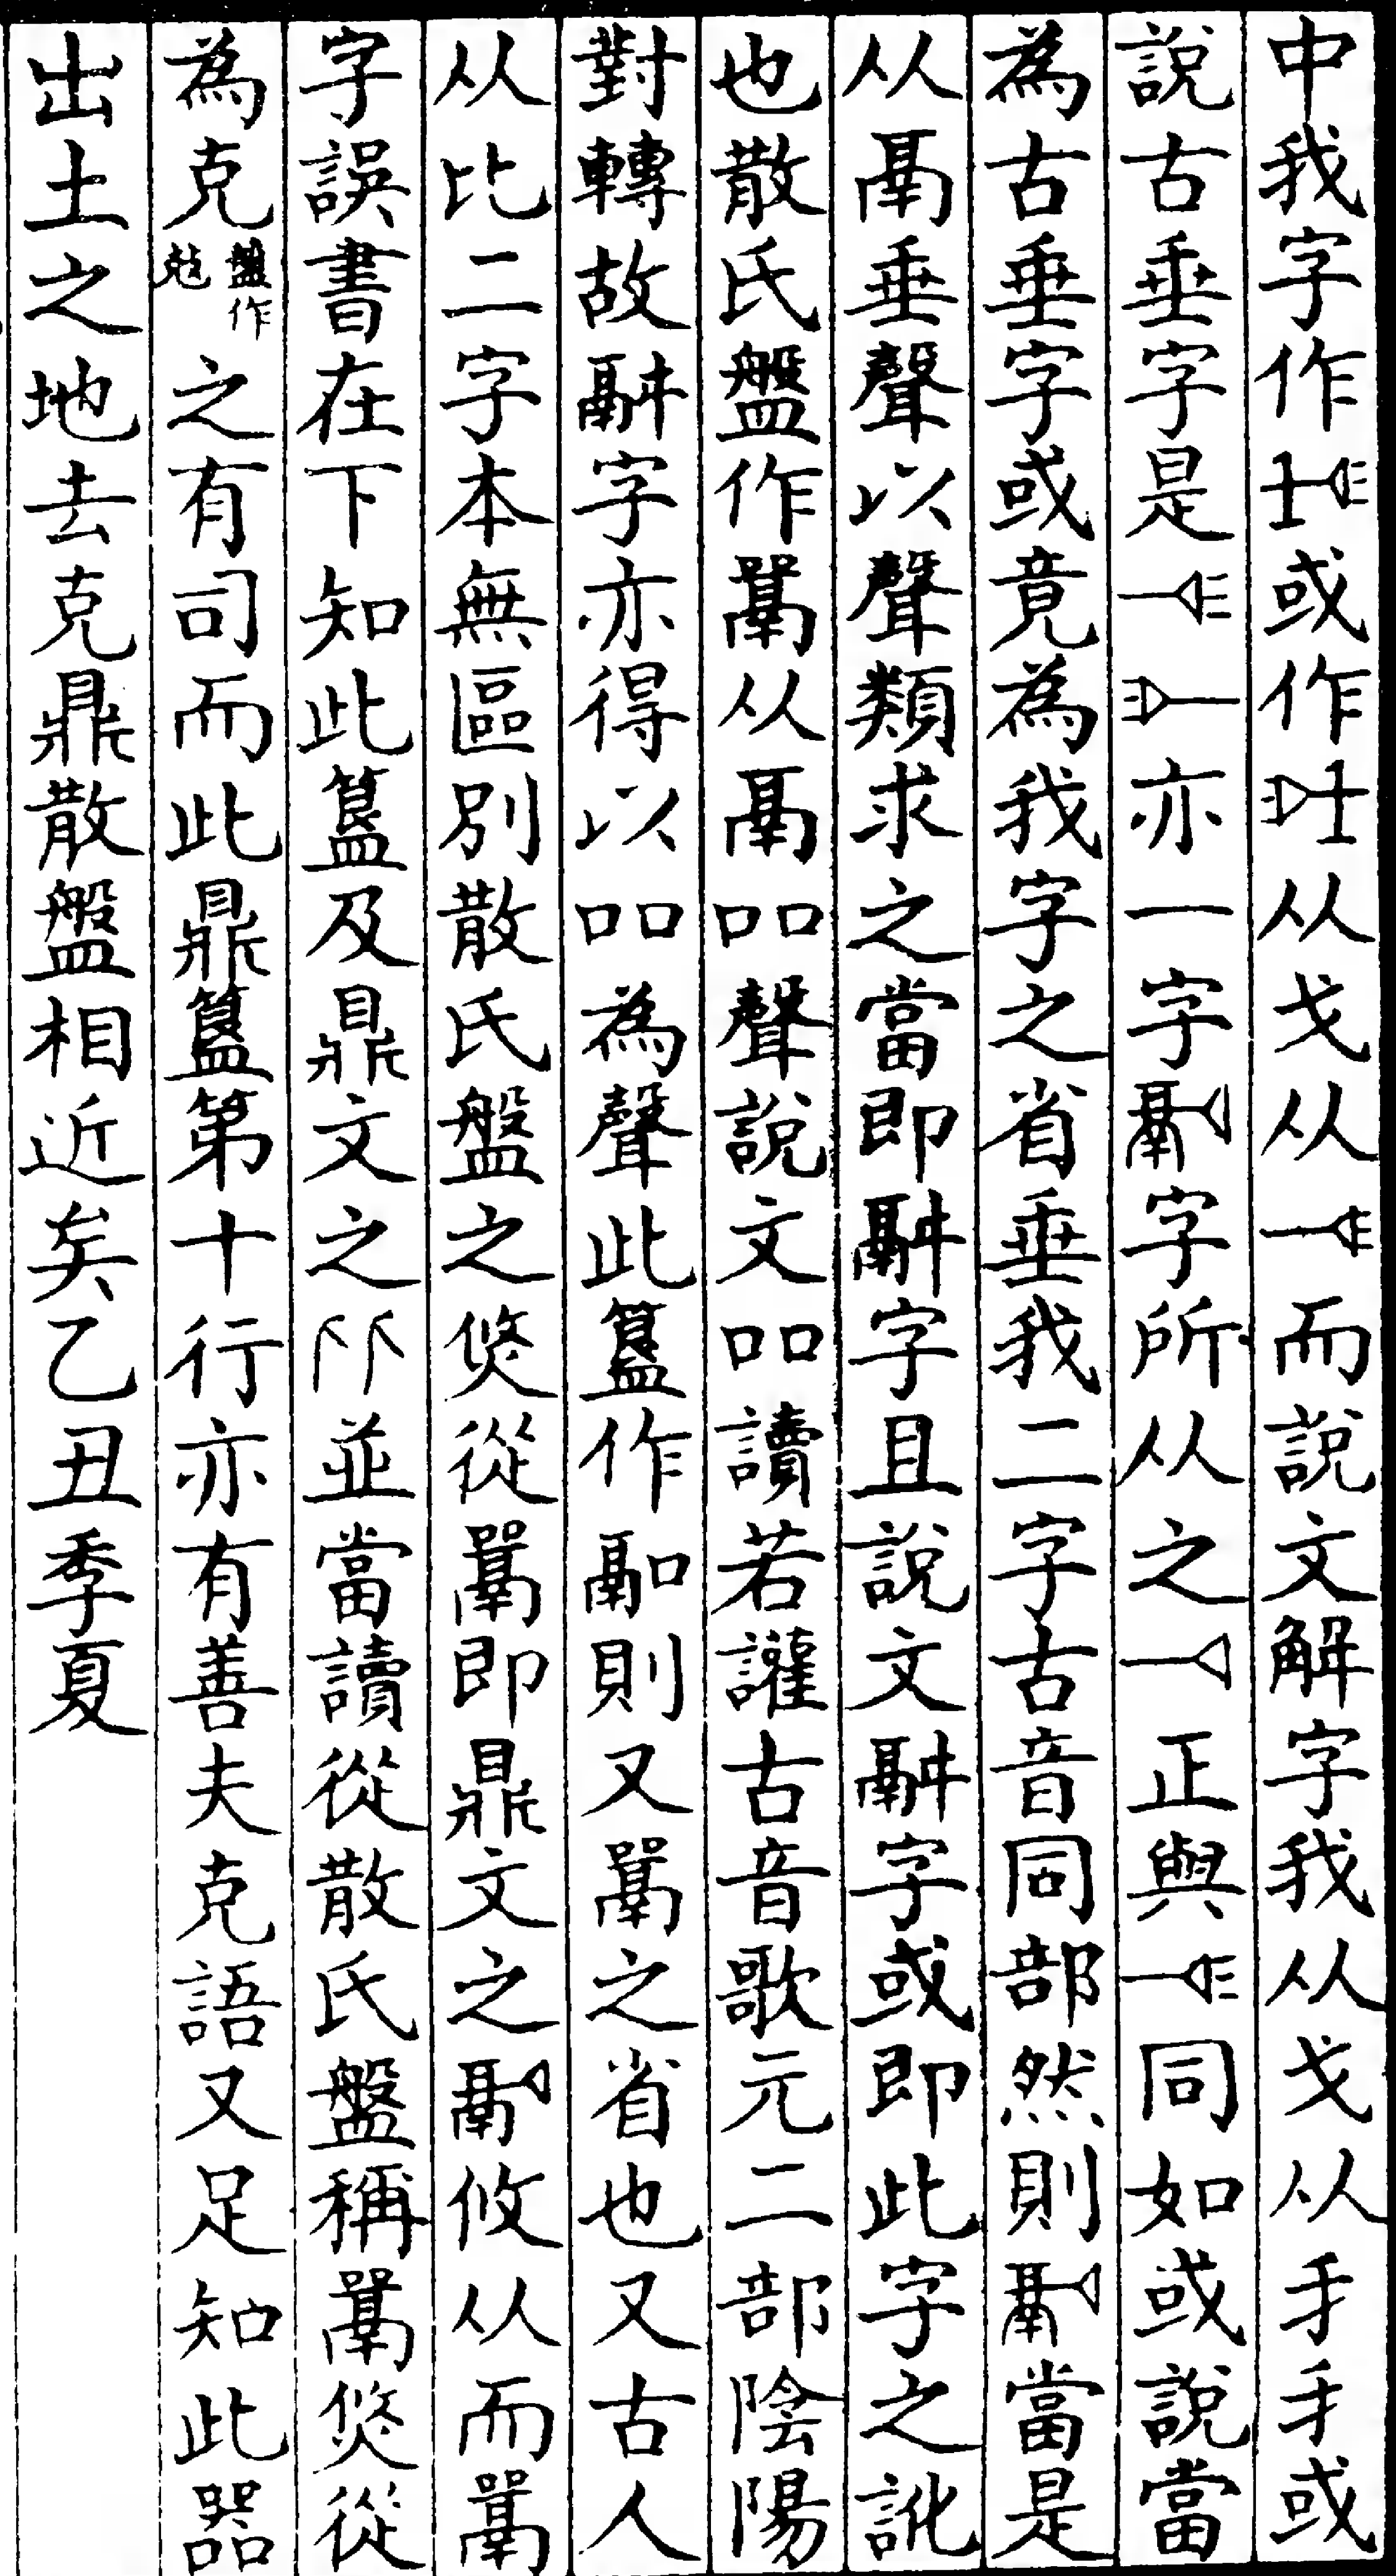 中我字作或作从戈从而說文解字我从戈从𠂹𠂹或
說古垂字是亦一字字所从之正與同如或說當
為古垂字或竟為我字之省垂我二字古音同部然則當是
从鬲垂聲以聲類求之當即字且說文字或即此字之訛
也散氏盤作从鬲吅聲說文吅讀若讙古音歌元二部陰陽
對轉故字亦得以吅為聲此簋作則又之省也又古人
从比二字本無區別散氏盤之從即鼎文之攸从而
字誤書在下知此簋及鼎文之並當讀從散氏盤稱從
為克盤作𠅏之有司而此鼎簋第十行亦有善夫克語又足知此器
出土之地去克鼎散盤相近矣乙丑季夏